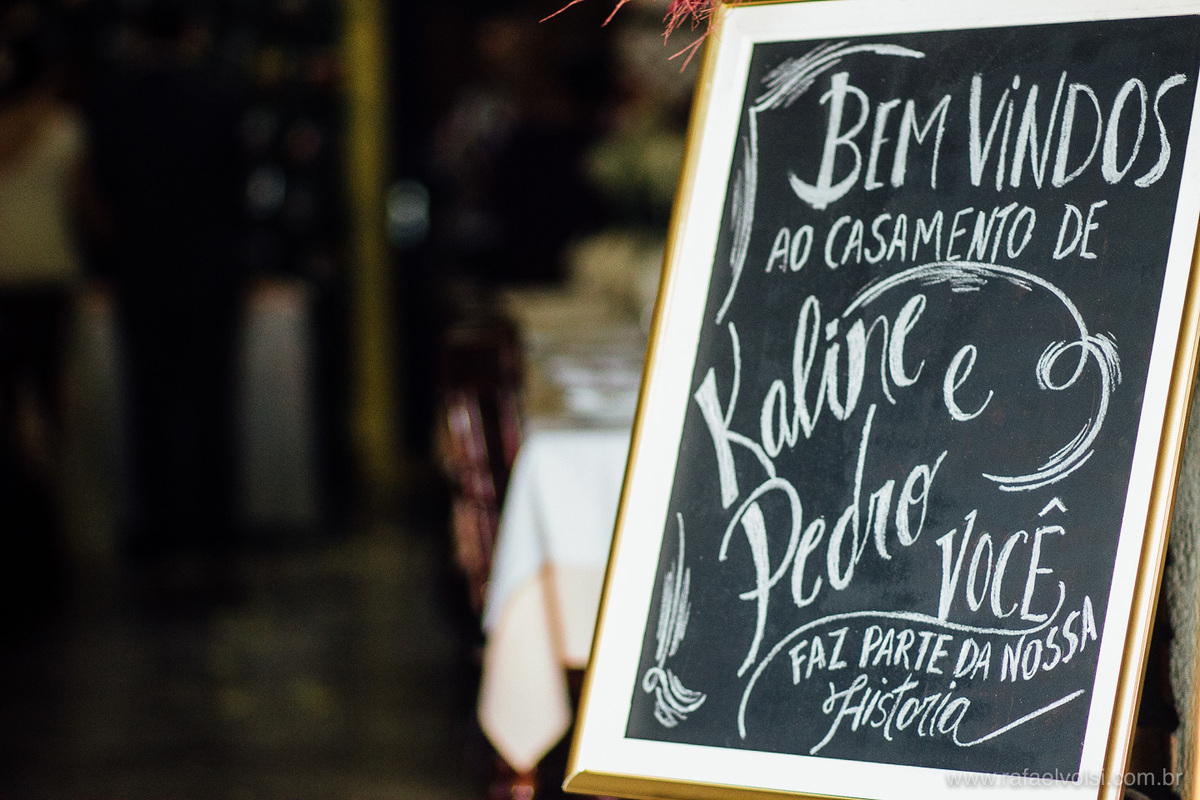 BEM ViNDOS
AO CASAMENTO DE
Kaline e
Pedro
VOCÊ
FAZ PARTE DA NOSSA
Historia
www.rafaelvolsi.com.br